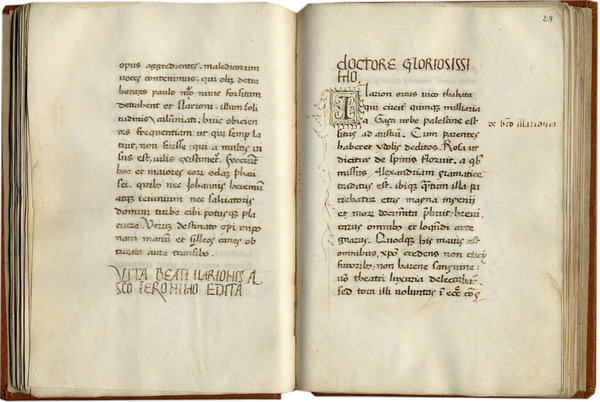 opus aggredientes. maledicorum
uoces contemnimus. qui olim detra
hentes paulo
detrahent et Ilarioni. illum soli
tudinis calumniati. huic obicien
tes frequentiam: ut qui semper la
tuit, non fuisse: qui a multis ui
sus est, uilis existimetur. Fecerunt
hoc et maiores eorum
sei. quibus nec Johannis heremum
atque ieiunium nec saluatoris
domini turbe cibi potusque pla
cuere. Verum destinato operi impo
nam manum et canes ob
turata aure transibo.
VITA BEATI ILARIONIS A
SCO IERONIMO EDITA
29
DOCTORE GLORIOSISSI
MO.
Ilarion ortus uico thabata
qui circiter quinque miliaria
a Gaza urbe palestine est
situs ad austrum. Cum parentes
haberet ydolis deditos. Rosa ut
dicitur de spinis floruit. a quibus
missus Alexandriam gramatice
traditus est. ibique quantum illa pa
tiebatur etas magna ingenii
et morum documenta prebuit: breui
carus omnibus et loquendi arte
gnarus. Quodque his maius est
omnibus, credens non circi
furoribus, non harene sanguine:
non theatri luxuria delectabatur.
sed tota illi uoluntas in
de bto Illarione